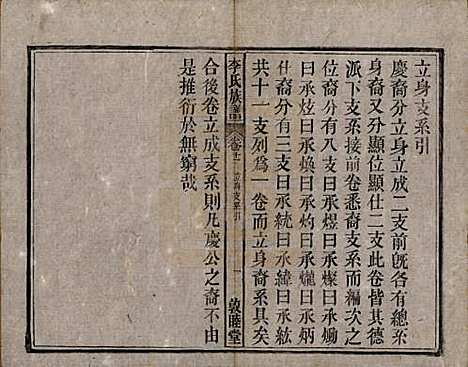 立身支系引
慶裔分立身立成二支前旣各有總系
身裔又分顯位顯仕二支此卷皆其德
派下支系接前卷悉裔支系而編次之
位裔分有八支曰承煜曰承燦曰承煬
曰承炫曰承煥曰承灼曰承爟曰承炳
仕裔分有三支曰承統曰承緯曰承紘
共十一支列爲一卷而立身裔系具矣
李氏族譜
卷十二
立身支系引
一
敦睦堂
合後卷立成支系則凡慶公之裔不由
是推衍於無窮哉